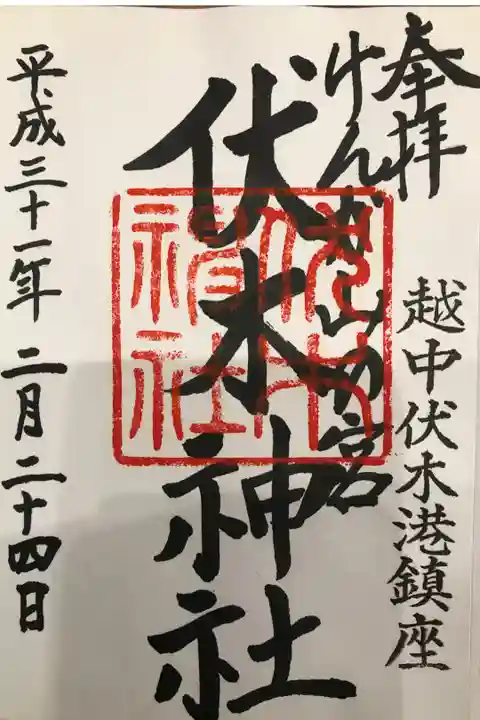 奉拝
越中伏木港鎮座
けんか山の宮
伏木神社
平成三十一年二月二十四日